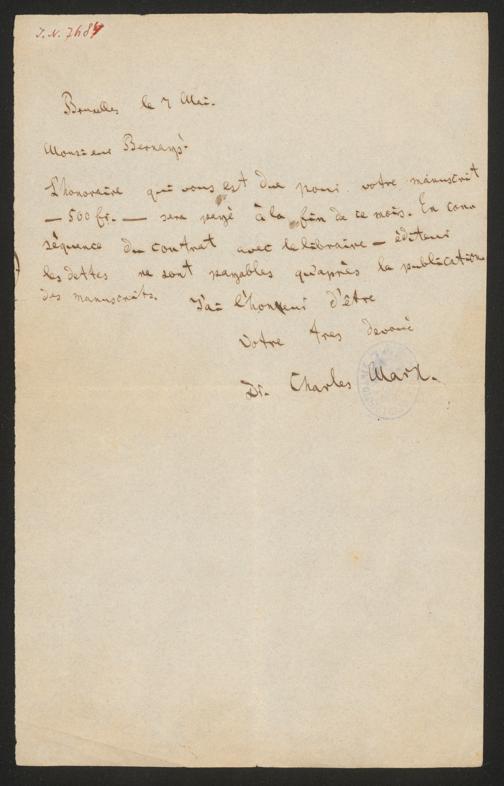 J.N. 7684
Bruxelles le 7 Mai.
Monsieur Bernays.
L'honoraire qui vous est due pour votre manuscrit
— 500 fr. — sera payé à la fin de ce mois. En con
séquence du contrat avec le libraire-éditeur
les dettes ne sont payables qu'après la publication
des manuscrits. J'ai l'honneur d'être
votre tres devoué
Dr. Charles Marx.